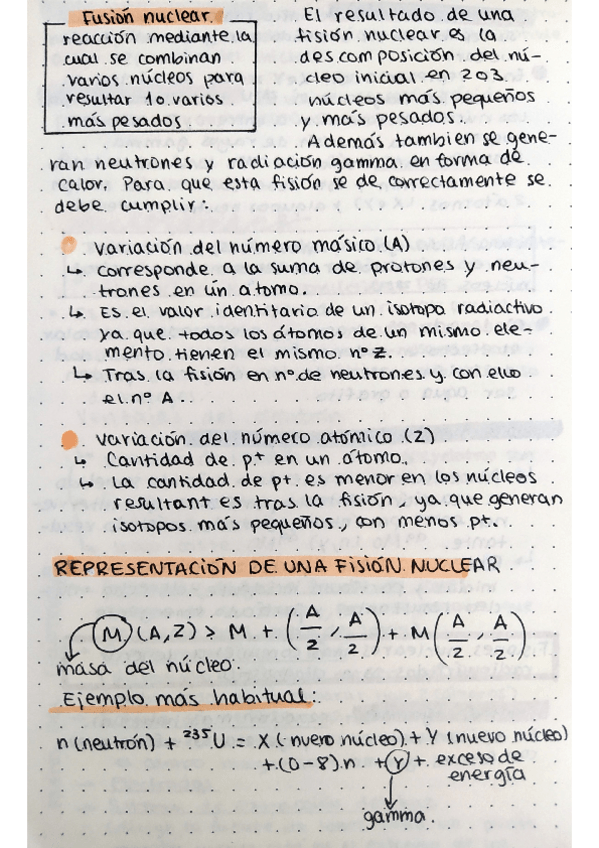 Fusión nuclear
reacción mediante la
cual se combinan
varios núcleos para
resultar 1 o varios
más pesados
El resultado de una
fisión nuclear es la
descomposición del nú-
cleo inicial en 2 o 3
núcleos más pequeños
y más pesados.
Además tambien se gene-
ran neutrones y radiación gamma en forma de
calor. Para que esta fisión se de correctamente se
debe cumplir:
Variación del número másico (A)
↳ corresponde a la suma de protones y neu-
trones en un átomo.
↳ Es el valor identitario de un isotopo radiactivo
ya que todos los átomos de un mismo ele-
mento tienen el mismo nº Z.
↳ Tras la fisión en nº de neutrones y con ello
el nº A.
Variación del número atómico (Z)
↳ Cantidad de p+ en un átomo.
↳ La cantidad de p+ es menor en los núcleos
resultantes tras la fisión, ya que generan
isotopos más pequeños, con menos p+.
REPRESENTACIÓN DE UNA FISIÓN NUCLEAR
M (A,Z) > M + (A/2, A/2) + M (A/2, A/2)
masa del núcleo.
Ejemplo más habitual:
n (neutrón) + ²³⁵U = X (nuevo núcleo) + Y (nuevo núcleo)
+ (0-8) n + γ + exceso de
energía
gamma